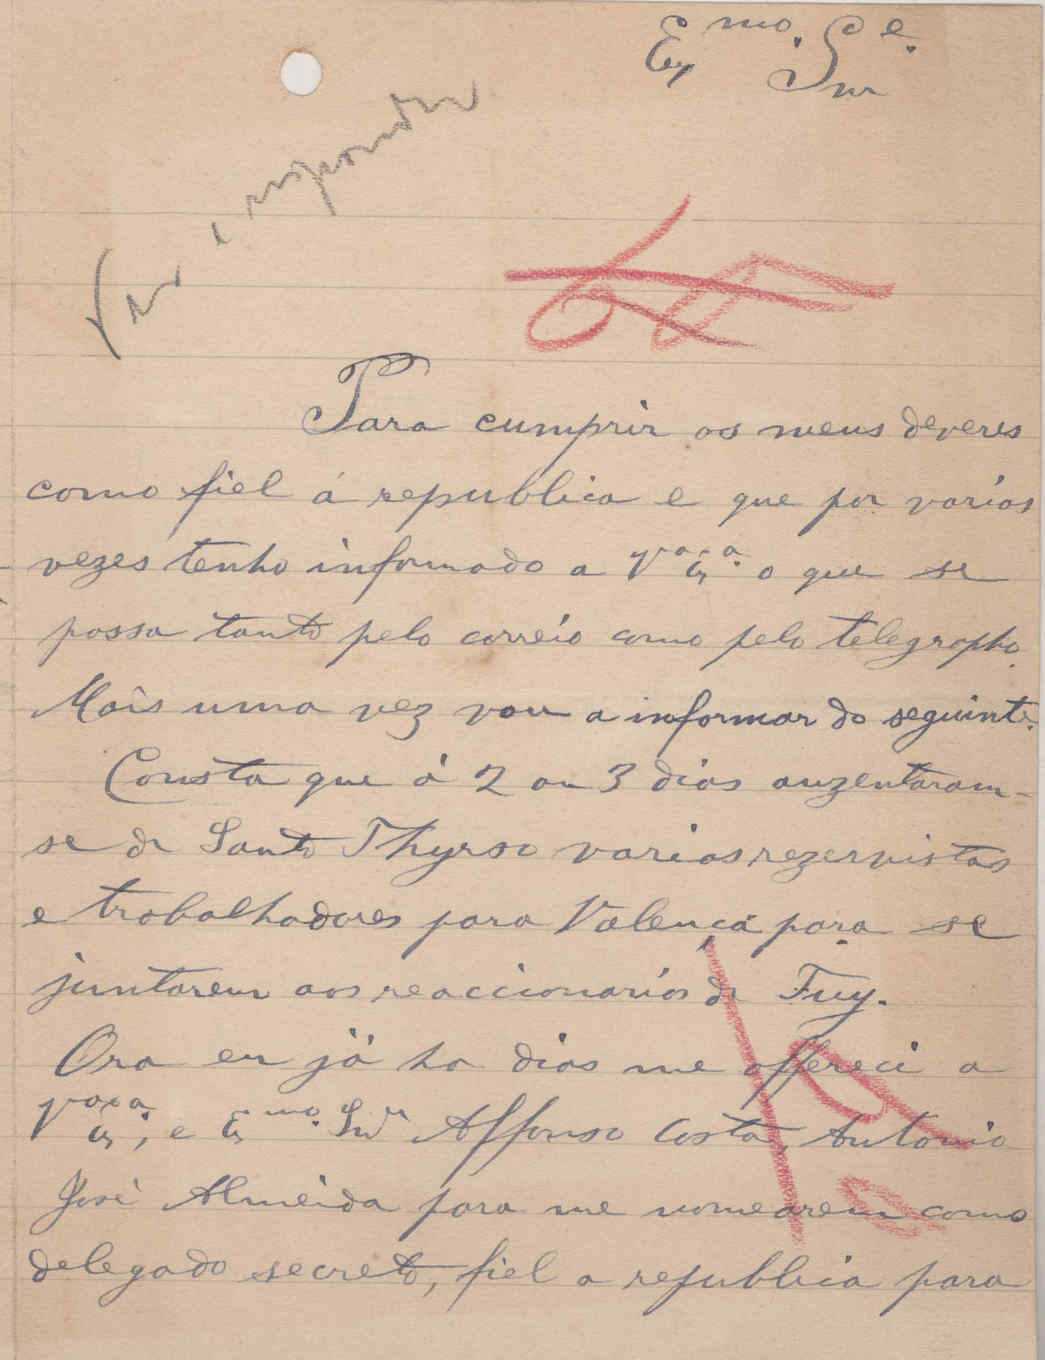 Exmo. Snr
respondeu
Para cumprir os meus deveres
como fiel á republica e que por varias
vezes tenho informado a Va Exa. o que se
passa tanto pelo correio como pelo telegrapho.
Mais uma vez vou a informar do seguinte.
Consta que á 2 ou 3 dias auzentaram-
se de Santo Thyrso varios rezervistas
e trabalhadores para Valença para se
juntarem aos reaccionarios de Tuy.
Ora eu já ha dias me offereci a
Va Exa, e Exmo. Snr Affonso Costa, Antonio
José Almeida para me nomearem como
delegado secreto, fiel a republica para